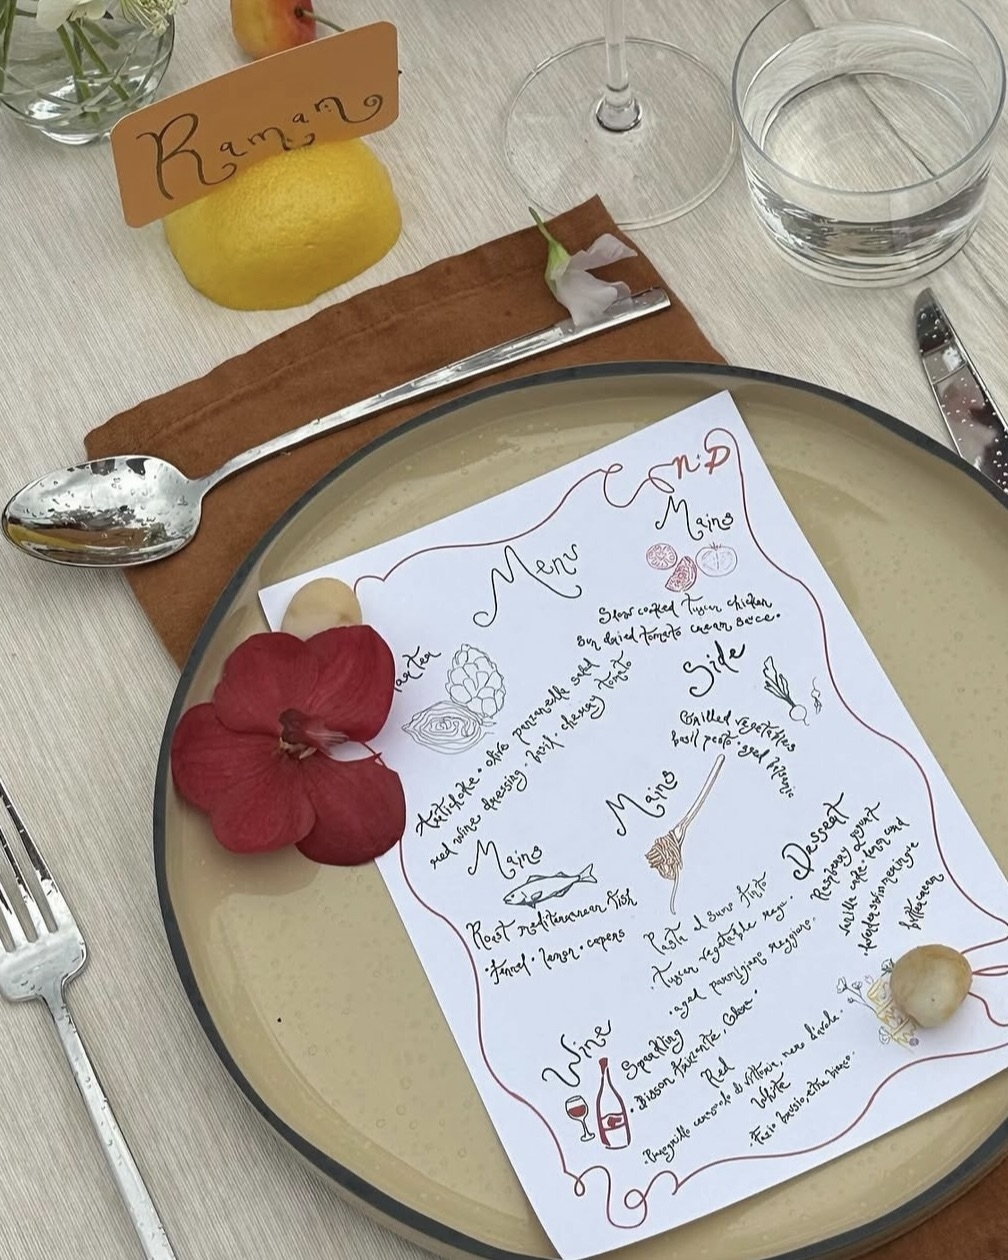 Raman
N.D
Menu
Mains
Slow cooked Tuscan chicken
Sun dried tomato cream sauce.
arter
Artichoke • olive panzanella salad
red wine dressing • basil • cherry tomato
Side
Grilled vegetables
basil pesto • aged balsamic
Mains
Roast mediterranean fish
• fennel • lemon • capers
Mains
Pasta al sumo finto
• Tuscan vegetable ragu •
• aged parmigiano reggiano.
Dessert
Raspberry yogurt
vanilla cake • lemon curd
meringue
buttercream
Wine
Sparkling
• Bisson, frizzante, Glera •
Red
cerasuolo di vittoria, nero d'avola.
White
• Fazio brusio, etna bianco.